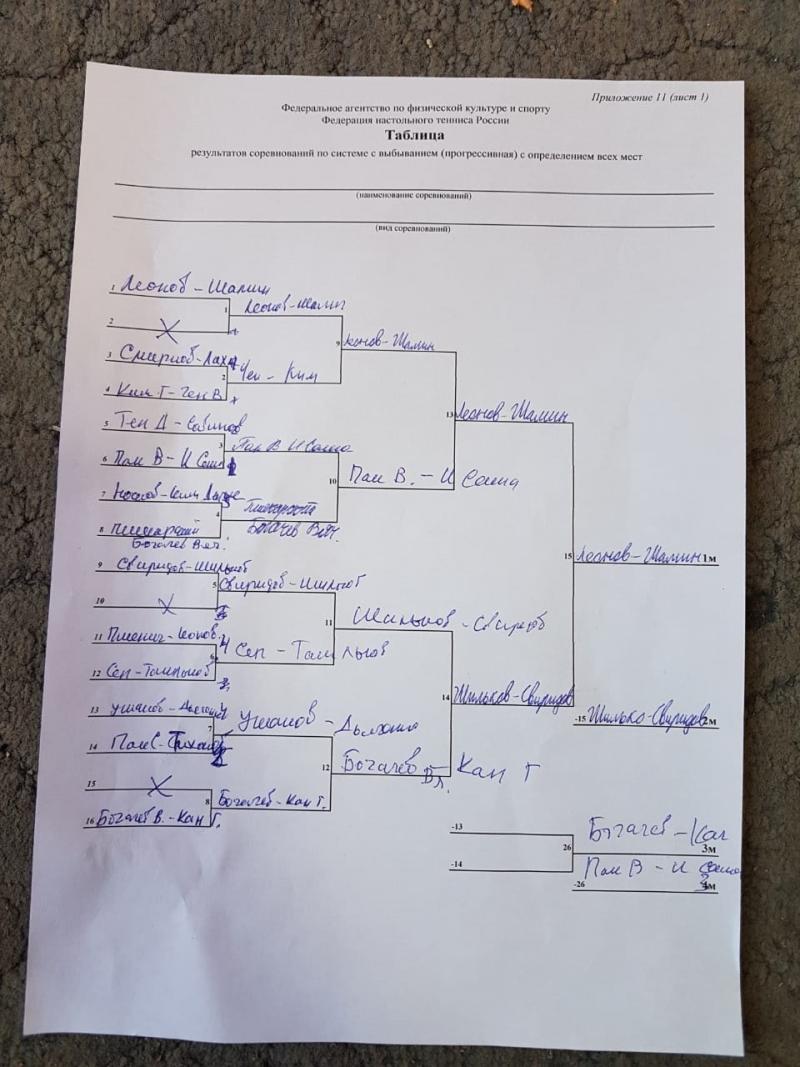 Приложение 11 (лист 1)
Федеральное агентство по физической культуре и спорту
Федерация настольного тенниса России
Таблица
результатов соревнований по системе с выбыванием (прогрессивная) с определением всех мест
(наименование соревнований)
(вид соревнований)
1 Леонов - Шалин
1 Леонов - Шалин
2 X
9 Леонов - Шалин
3 Смирнов -
2 Чен - Ким
4 Ким Г - Чен В
13 Леонов - Шалин
5 Тен Д - Сабинов
3 Пак В И Саша
6 Пак В - И Саша
10 Пак В. - И Саша
7 Носков - Ким
4
Богачев Вяч.
8
Богачев Вяч.
15 Леонов - Шалин 1м
9 Свиридов - Шильков
5 Свиридов - Шильков
10 X
11 Шильков - Свиридов
11 - Леонов
6 Сен - Там
12 Сен -
14 Шильков - Свиридов
-15 Шилько - Свиридов 2м
13 Ушаков -
7 Ушаков -
14
12 Богачев Вл. - Кан Г
15 X
8 Богачев - Кан Г.
16 Богачев В. - Кан Г.
-13
26 Богачев - Кан 3м
-14
Пак В - И Саша
-26 4м